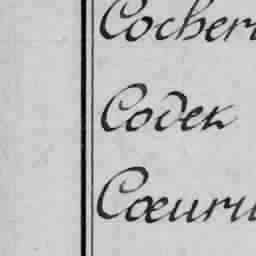 Cocher
Codex
Cœuru